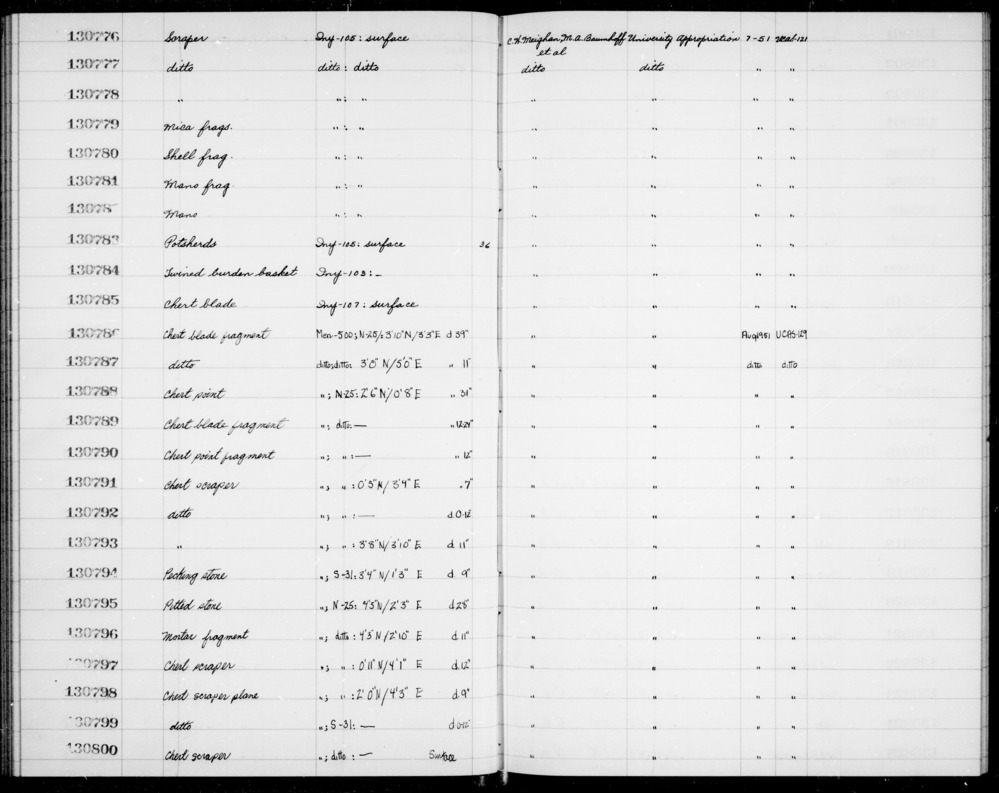 130776 Scraper Iny-105: surface C.W. Meighan, M.A. Baumhoff University Appropriation 7-51
et al
130777 ditto ditto: ditto ditto ditto " "
130778 " ": " " " " "
130779 Mica frags. ": " " " " "
130780 Shell frag. ": " " " " "
130781 Mano frag ": " " " " "
13078 Mano ": " " " " "
130783 Potsherds Iny-105: surface 36 " " " "
130784 Twined burden basket Iny-103: – " " " "
130785 Chert blade Iny-107: surface " " " "
130786 Chert blade fragment Men-500; N-25/: 3'10"N/3'3"E d 39" " " Aug1951 UCAS-129
130787 ditto ditto; ditto: 3'0" N/5'0" E " 11" " " ditto ditto
130788 Chert point "; N-25: 2'6"N/0'8"E " 31" " " " "
130789 Chert blade fragment "; ditto: — " 12-24" " " " "
130790 Chert point fragment "; ": — " 12" " " " "
130791 Chert scraper "; ": 0'5"N/3'4" E " 7" " " " "
130792 ditto "; ": — d.0-12 " " " "
130793 " "; ": 3'8"N/3'10" E d 11" " " " "
130794 Pecking stone "; S-31: 3'4" N/1'3" E d 9" " " " "
130795 Pitted stone "; N-25: 4'5"N/2'3" E d 28" " " " "
130796 Mortar fragment "; ditto: 4'3"N/2'10" E d 11" " " " "
130797 Chert scraper "; ": 0'11"N/4'1" E d.12" " " " "
130798 Chert scraper plane "; ": 2'0"N/4'3" E d.9" " " " "
130799 ditto "; S-31: — d 0-12" " " " "
130800 Chert scraper "; ditto: — Surface " " " "